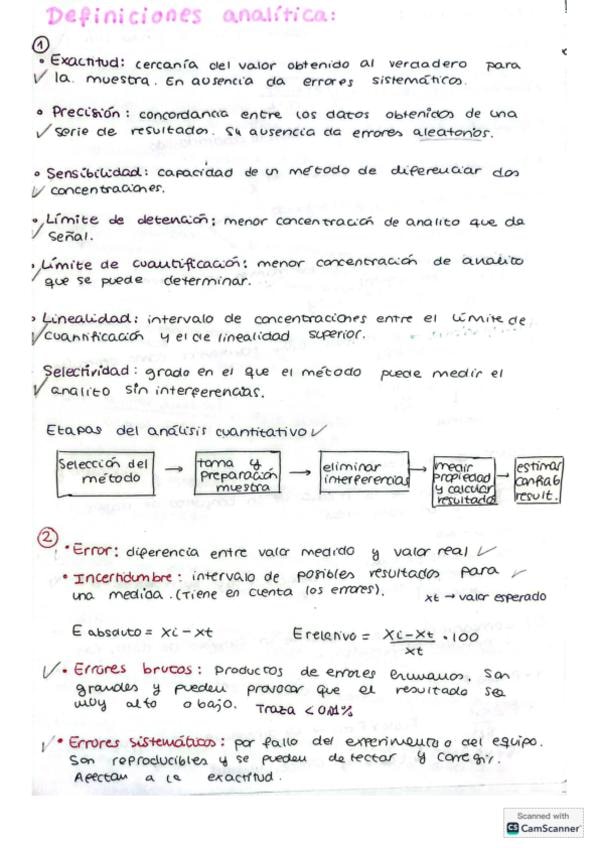 Definiciones analítica:
1
• Exactitud: cercanía del valor obtenido al verdadero para
la muestra. En ausencia da errores sistemáticos.
• Precisión: concordancia entre los datos obtenidos de una
serie de resultados. Su ausencia da errores aleatorios.
• Sensibilidad: capacidad de un método de diferenciar dos
concentraciones.
• Límite de detención: menor concentración de analito que da
señal.
• Límite de cuantificación: menor concentración de analito
que se puede determinar.
• Linealidad: intervalo de concentraciones entre el límite de
cuantificación y el de linealidad superior.
Selectividad: grado en el que el método puede medir el
analito sin interferencias.
Etapas del análisis cuantitativo
Selección del método → toma y preparación muestra → eliminar interferencias → medir propiedad y calcular resultado → estimar confiab result.
2
• Error: diferencia entre valor medido y valor real
• Incertidumbre: intervalo de posibles resultados para
una medida. (Tiene en cuenta los errores). xt → valor esperado
E absoluto = xi - xt E relativo = xi - xt / xt · 100
• Errores brutos: Productos de errores humanos. Son
grandes y pueden provocar que el resultado sea
muy alto o bajo. Traza < 0,01%
• Errores sistemáticos: por fallo del experimento o del equipo.
Son reproducibles y se pueden detectar y corregir.
Afectan a la exactitud.
Scanned with
CS CamScanner